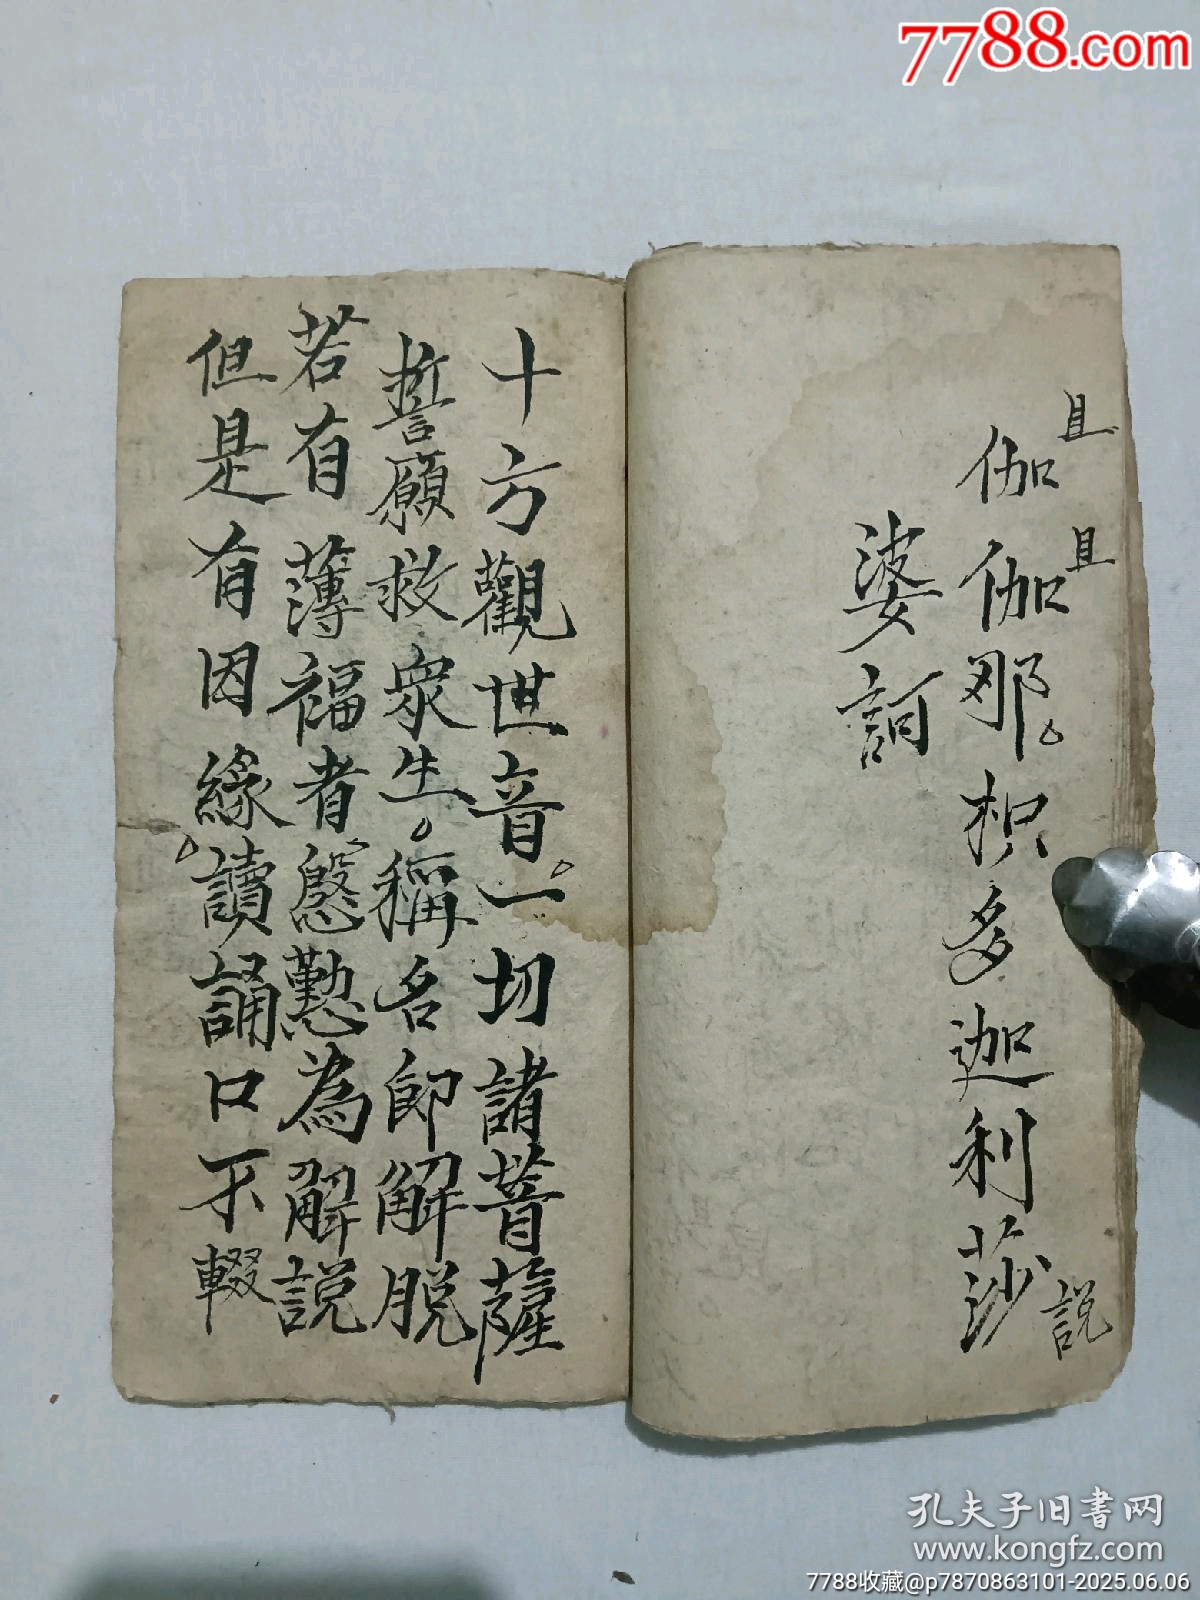 7788.com
且
且
説
伽伽那枳多迦利莎
婆訶
十方觀世音一切諸菩薩
誓願救衆生稱名即解脱
若有薄福者慇懃為解説
但是有因緣讀誦口不輟
孔夫子旧书网
www.kongfz.com
7788收藏@p7870863101-2025.06.06